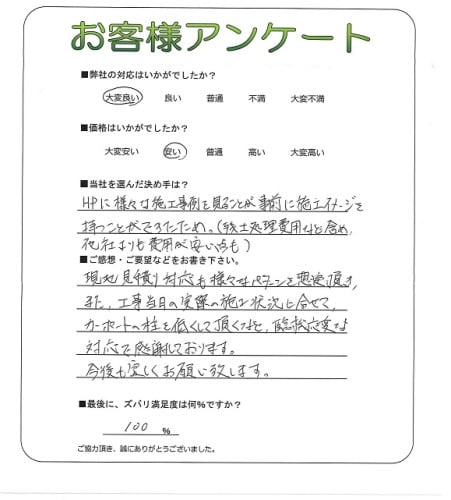 お客様アンケート
■弊社の対応はいかがでしたか?
大変良い 良い 普通 不満 大変不満
■価格はいかがでしたか?
大変安い 安い 普通 高い 大変高い
■当社を選んだ決め手は?
HPに様々な施工事例を見ることが事前に施工イメージを
持つことができたため。(残土処理費用などと含め、
他社よりも費用が安い点も)
■ご感想・ご要望などをお書き下さい。
現地見積り対応も様々なパターンを思案頂き、
また、工事当日の実際の施工状況に合せて、
カーポートの柱を低くして頂くなど、臨機応変な
対応で感謝しております。
今後も宜しくお願い致します。
■最後に、ズバリ満足度は何%ですか?
100 %
ご協力頂き、誠にありがとうございました。